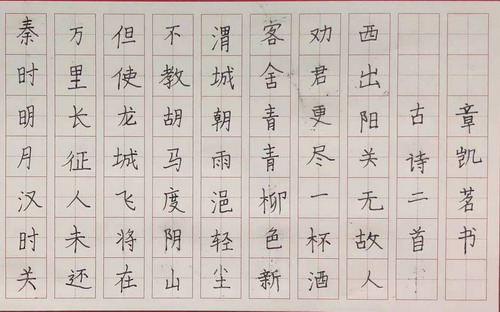 秦时明月汉时关
万里长征人未还
但使龙城飞将在
不教胡马度阴山
渭城朝雨浥轻尘
客舍青青柳色新
劝君更尽一杯酒
西出阳关无故人
古诗二首
章凯茗书